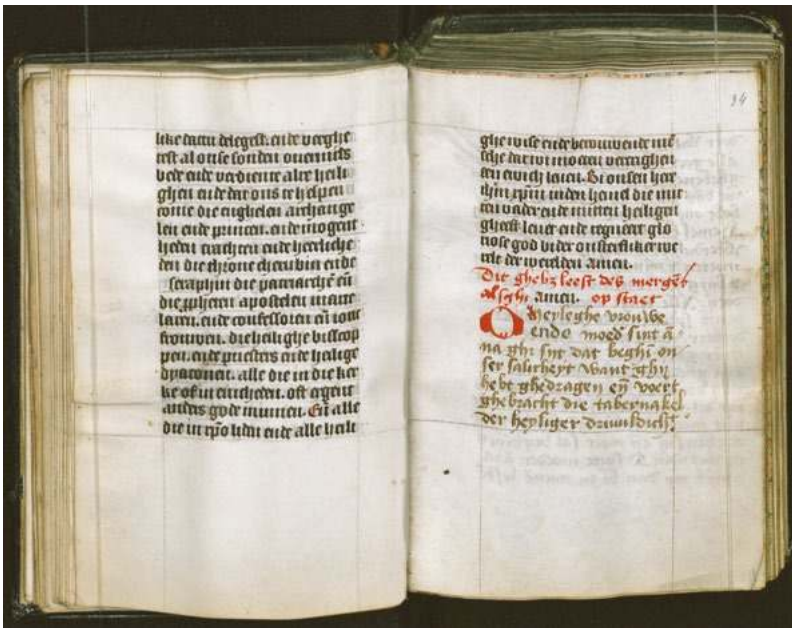 like dattu delegest. ende verghe
test al onse sonden ouermids
bede ende verdiente alre heili
ghen ende dat ons te helpen
come die enghelen archange
len ende princen. ende mogent
heden crachten ende heerliche
den die throne cherubin ende
seraphin die patriarchē eñ
die ꝓpheten apostelen marte
laren. ende confessoren eñ ionc
frouwen. die heilighe bisscop
pen. ende priesters ende heilige
dyaconen. alle die in die ker
ke of in enicheden. oft ergent
anders gode minnen. Eñ alle
die in xp̄o liden ende alle heili
34
ghe wise ende berouwende mē
sche dat wi moeten vercrighen
een ewich leuen. Bi onsen here
ihm̄ xp̄m in den hemel die mit
ten vader ende mitten heiligen
gheest leuet ende regneert glo
riose god vader onsterfliker we
relt der werelden Amen.
Dit ghebz leest des merges̄
alsghi amen. op staet
O Heyleghe vrouwe
ende moed̛ sint ā
na ghi syt dat beghi on
ser salicheyt want ghy
hebt ghedragen eñ voert
ghebracht die tabernakel
der heyliger driuuldich͛